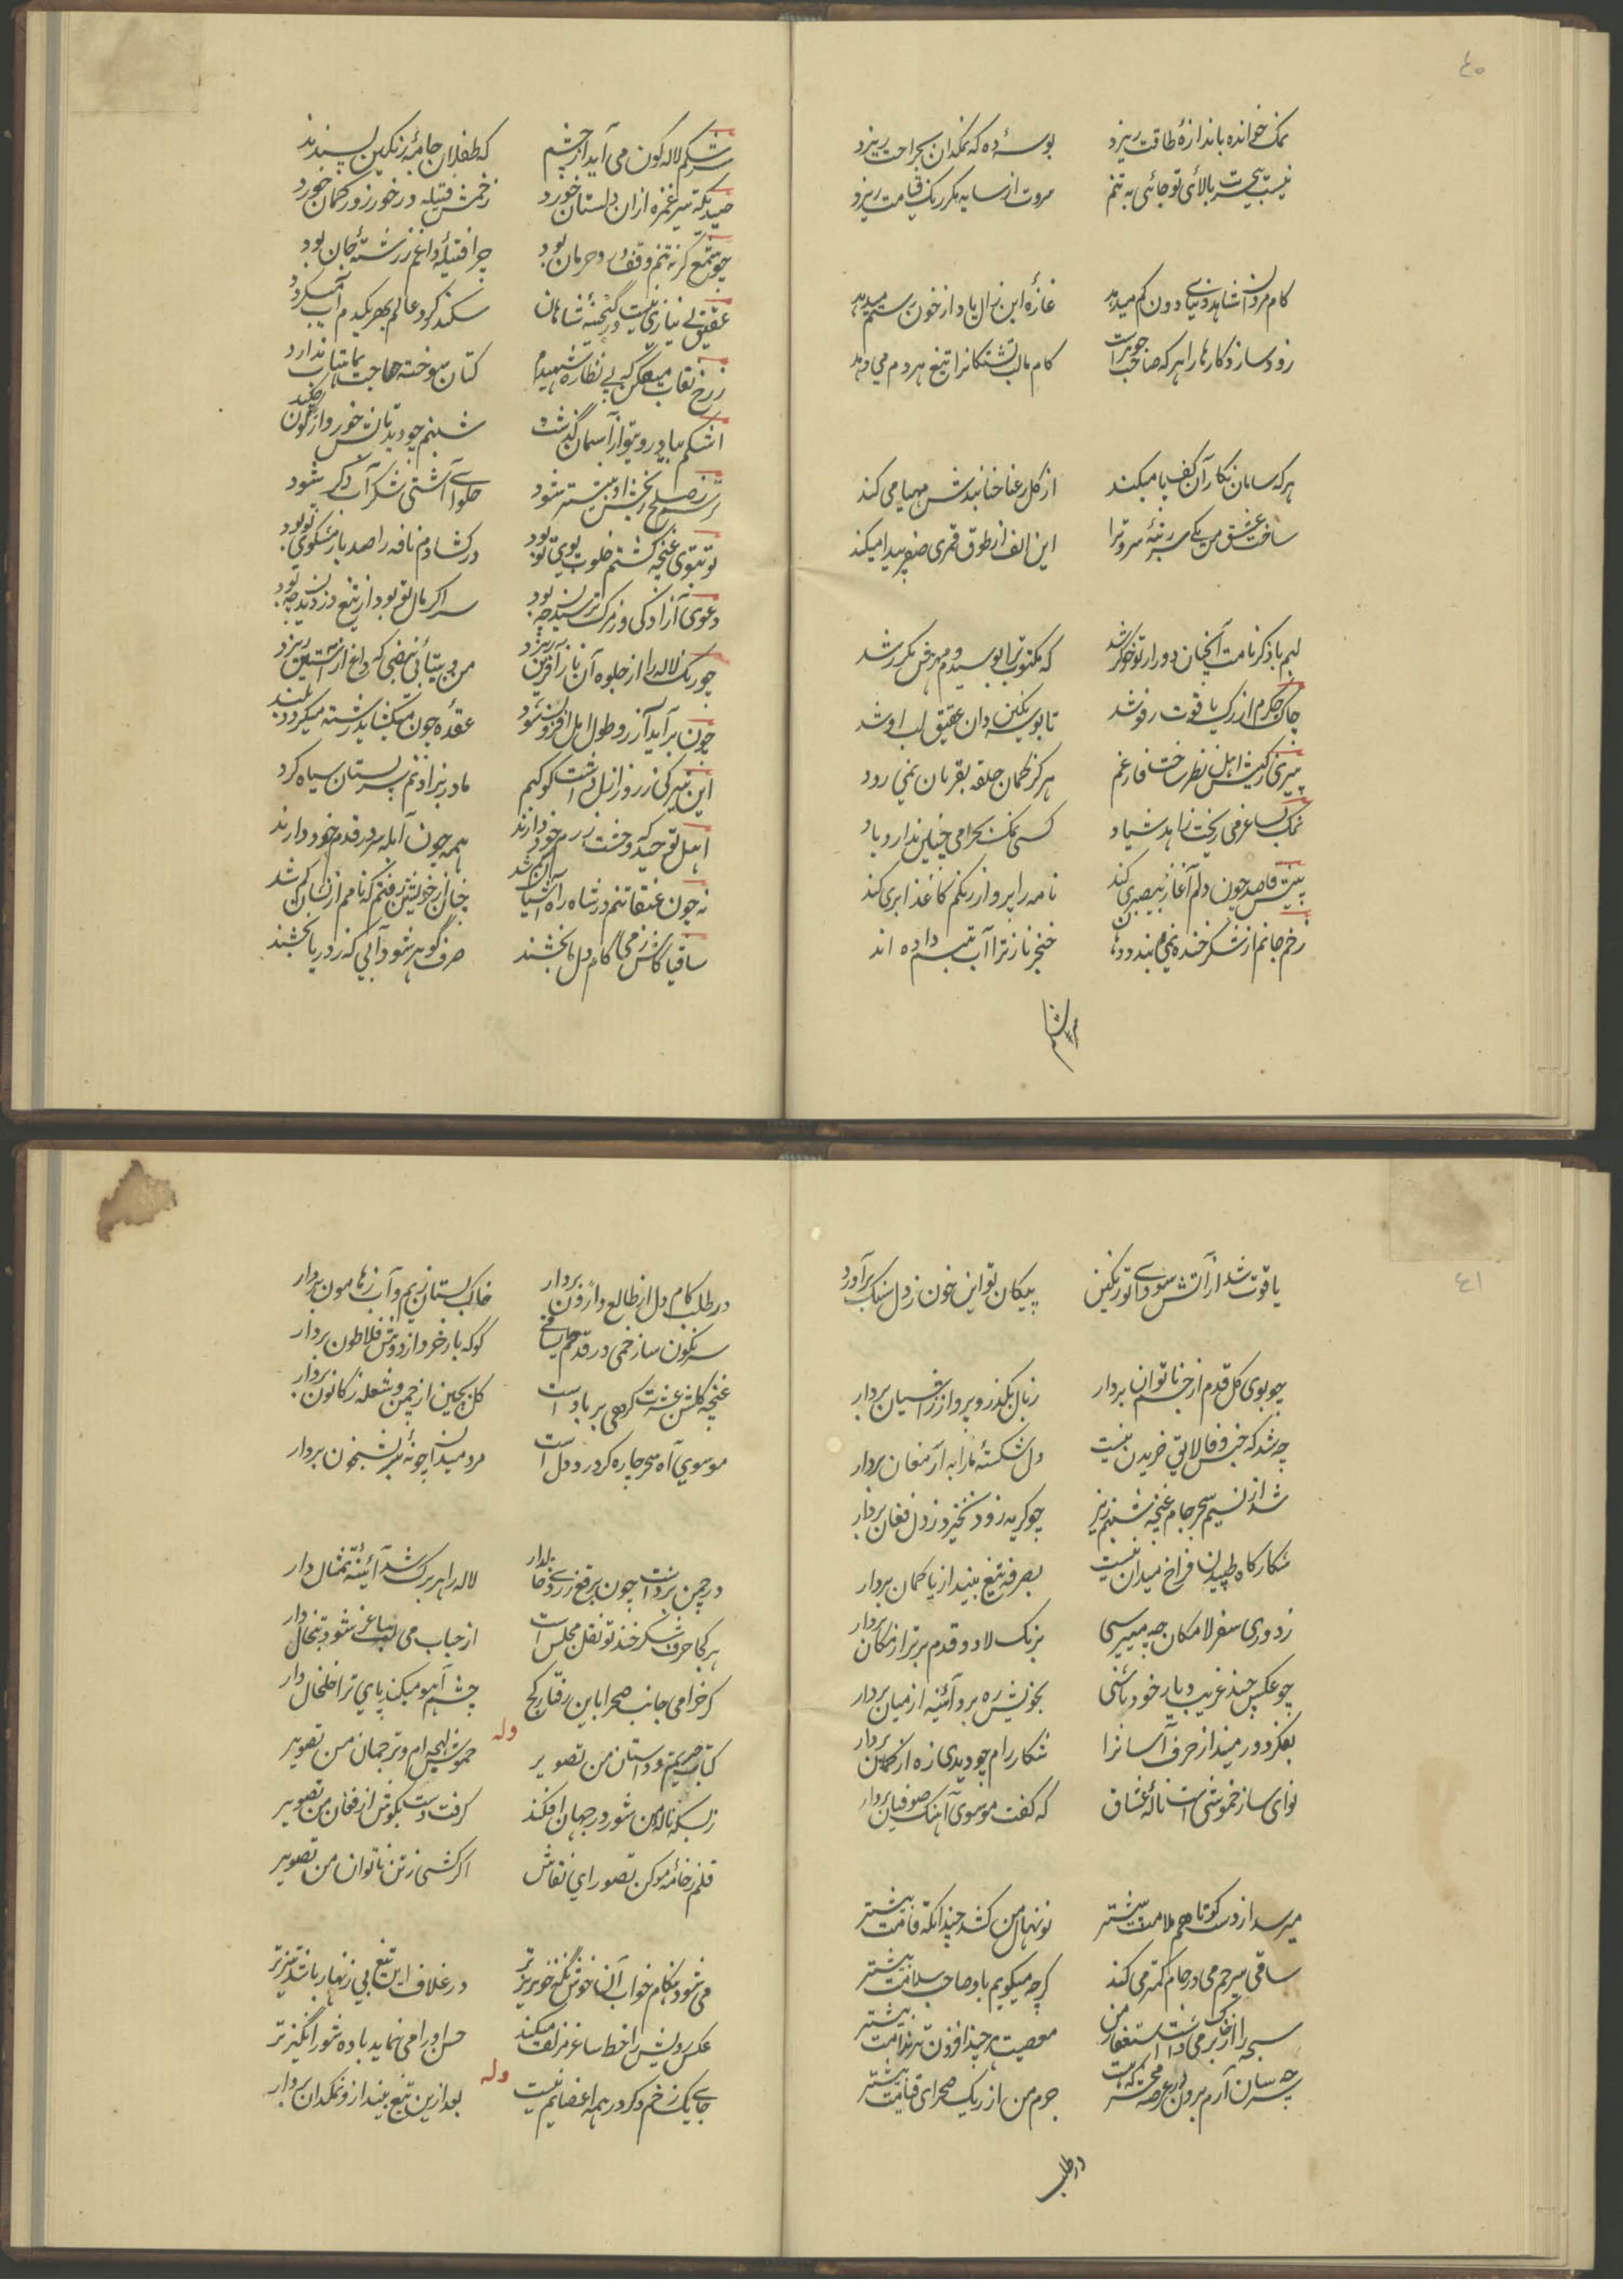 ٤٠
نمک خوانده باندازهٔ طاقت ریزد بوسهٔ ده که نمکدان بجراحت ریزد
نیست بیحسرت بالای تو جائی به تنم مروت از سایه مکر رنک قیامت ریزد
کام مردان شاهد دنیای دون کم میدهد غازهٔ این زال یاد از خون رستم میدهد
زود سازد کارها را هر که صاحب جوهر است کام ما لب تشنکانرا تیغ هر دم می دهد
هر که سامان نکار آن کف پا میکند از کل رعنا حنابندش مهیا می کند
ساخت عشق من یکی سر رتبهٔ سرو ترا این الف از طوق قمری صفر پیدا میکند
لبم با ذکر نامت آنچنان دور از تو خوکر شد که مکتوب ترا بوسیدم و مهرش مکرر شد
چاک جکرم از رک یاقوت رفو شد تا بوسه نکین دان عقیق لب او شد
پیری ز کیش اهل نظر ساخت فارغم هرکز کمان حلقه بقربان نمی رود
نمک بساغر می ریخت زاهد شیاد کسی نمک بحرامی چنین ندارد یاد
پیش قاصد چون دلم آغاز بیصبری کند نامه را پرواز رنکم کاغذ ابری کند
زخم جانم از شکر خنده نمی بندد دهن خنجر ناز ترا آب تبسم داده اند
سرشکم
سرشکم لاله کون می آید از چشم که طفلان جامهٔ رنکین پسندند
صیدیکه تیر غمزه ازان دلستان خورد زخمش فتیله در خور زور کمان خورد
چو شمع کر نه تنم وقف درد حرمان بود چرا فتیلهٔ داغم ز رشتهٔ جان بود
عقیق بی نیازی نیست در کنجینهٔ شاهان سکندر کرد عالم بهر یکدم آب میکردد
ز رخ نقاب میفکن که بی نظاره شهیدم کتان سوخته حاجت بماهتاب ندارد
اشکم بیاد روی تو از آسمان کذشت شبنم چو دید تابش خور واژکون چکید
رسم ز صلح رنجش او بیشتر شود حلوای آشتی شکرآب دکر شود
تو بتوی غنچه کشتم خلوت بوی تو بود در کشادم نافه را صد بار مشکوی تو بود
دعوی آزادکی وز مرک ترسیدن چه بود سر اکر مال تو بود از تیغ دزدیدن چه بود
چو رنک لاله را از جلوه آن ناز آفرین ریزد من و بیتابی نبضی که داغ از آستین ریزد
چون برآید آرزو طول امل افزون شود عقده چون میکشاید رشته میکردد بلند
این تیرکی ز روز ازل داشت کوکبم مادر بزاد نم سر پستان سیاه کرد
اهل توحید که وحشت ز رم خود دارند همه چون آبله سر در قدم خود دارند
نه چون عنقا تنم در شاه راه آشیان کم شد چنان از خویشتن رفتم که نامم از نشان کم شد
ساقیا کاش ز می کام دل ما بخشند صرف کوهر شود آبی که ز دریا بخشند
٤١
یاقوت شد از آتش سودای تو رنکین پیکان تو این خون ز دل سنک برآورد
چو بوی کل قدم از جسم ناتوان بردار ز بال بکذر و پرواز ز آشیان بردار
چه شد که جنس وفا لایق خریدن نیست دل شکستهٔ ما را به ارمغان بردار
شد از نسیم سحر جام غنچه شبنم ریز چو کریه زود نخیزد ز دل فغان بردار
شکارکاه طپیدن فراخ میدان نیست بصرفه تیغ بینداز یا کمان بردار
ز دوری سفر لامکان چه میپرسی بزنک لا دو قدم برتر از مکان بردار
چو عکس چند غریب دیار خود باشی بخویش ره برو آئینه از میان بردار
بفکر دور مینداز حرف آسانرا شکار رام چو دیدی زه از کمان بردار
نوای ساز خموشی است نالهٔ عشاق که کفت موسوی آهنک صوفیان بردار
میرسد از دست کوتاهم ملامت بیشتر نونهال من کشد چندانکه قامت بیشتر
ساقی بیرحم می در جام کمتر می کند کرچه میکویم باو صاحب سلامت بیشتر
سبحه را از خاک برمی داشت استغفار من معصیت هر چند افزون تر ندامت بیشتر
چه سان آرم برون در عرصهٔ محشر که هست جرم من از ریک صحرای قیامت بیشتر
در طلب
در طلب کام دل از طالع وارون بردار خاک بستان ز یم و آب ز هامون بردار
سرنکون ساز خمی در قدحم ای ساقی کو که بار خرد از دوش فلاطون بردار
غنچهٔ کلشن عشرت کرهی بر باد است کل بچین از چمن و شعله ز کانون بردار
موسوی آه سحر چارهٔ کر درد دل است مرد میدان چو نهٔ تیر شبیخون بردار
در چمن برداشت چون برقع ز روی خالدار لاله را هر برک شد آئینهٔ تمثال دار
هر کجا حرف شکر خند تو نقل مجلس است از حباب می لب ساغر شود تبخال دار
کر خرامی جانب صحرا باین رفتار کج چشم آهو میکند پای ترا خلخال دار
وله
کتاب حیرتم و داستان من تصویر خموش لهجه ام و ترجمان من تصویر
ز بسکه نالهٔ من شور در جهان افکند کرفت دست بکوش از فغان من تصویر
قلم ز خامهٔ مو کن تصور ای نقاش اکر کشی ز تن ناتوان من تصویر
می شود هنکام خواب آن ناخوش نکه خونریزتر در غلاف این تیغ بی زنهار باشد تیزتر
عکس رویش را خط ساغر مزلف میکند حسن او را می نماید باده شورانکیزتر
وله
جای یک زخم دکر در همه اعضایم نیست بعد ازین تیغ بینداز و نمکدان بردار